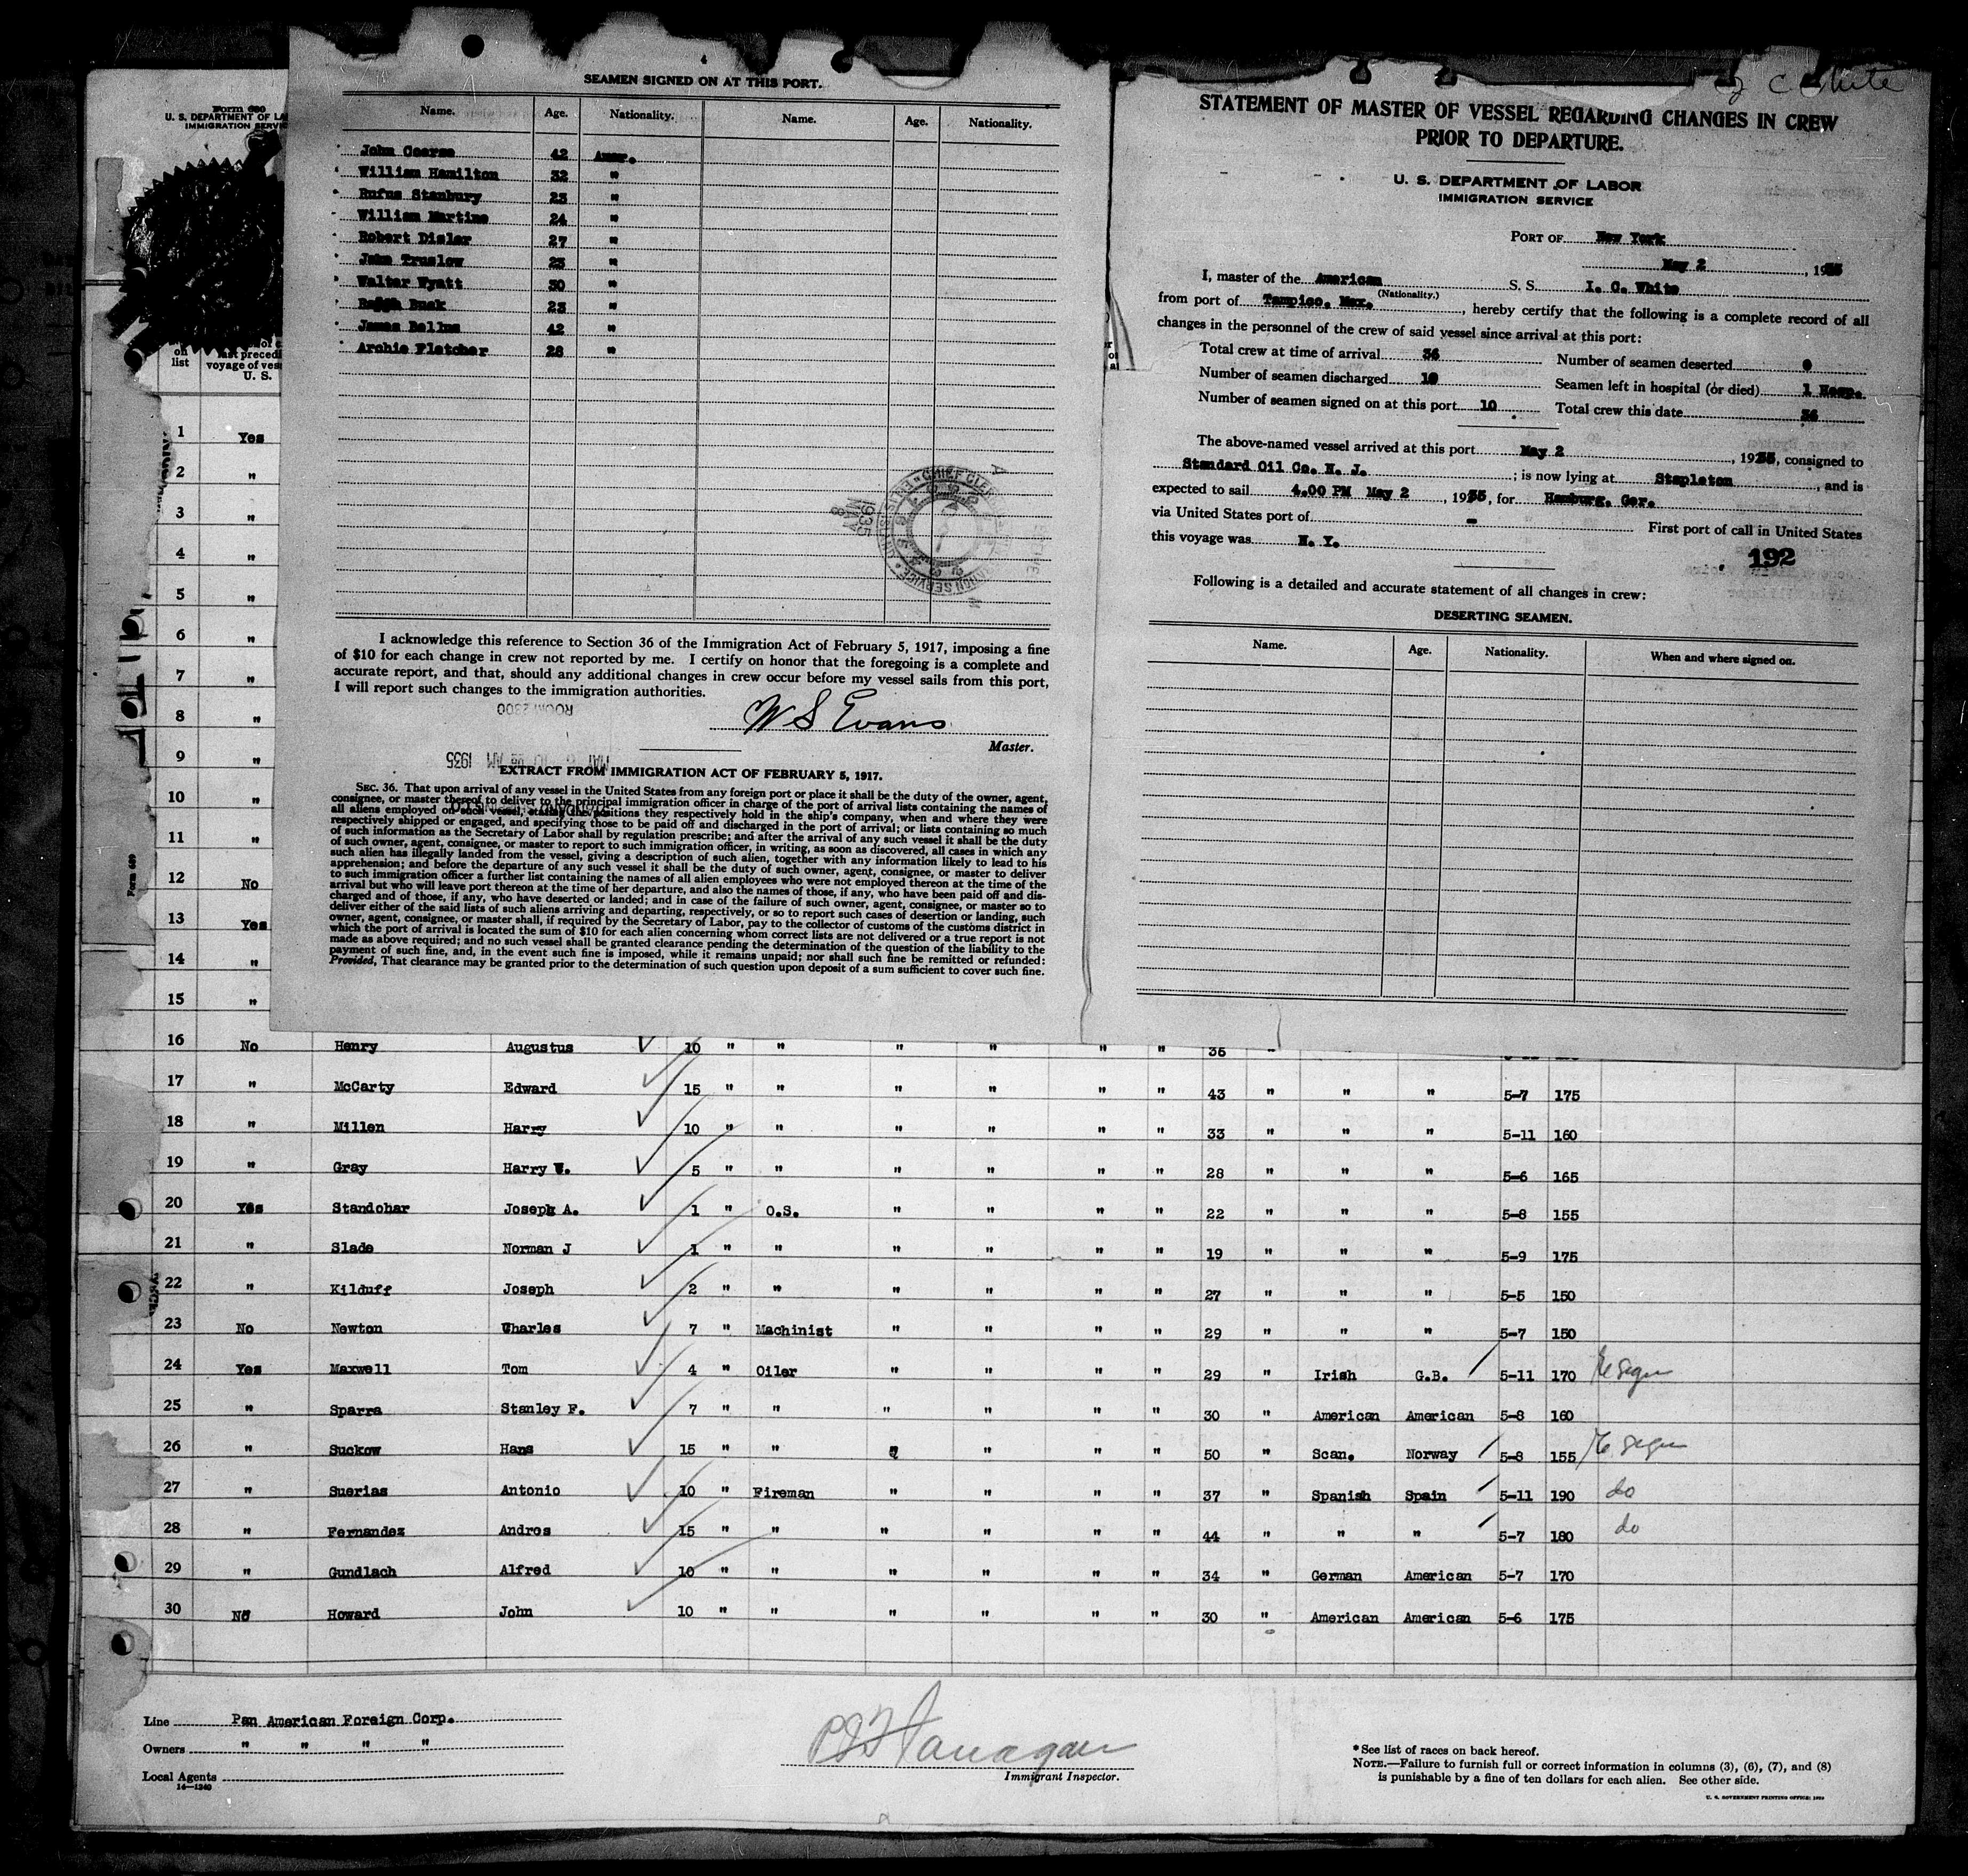 I C White
Form 680
U. S. DEPARTMENT OF LA
IMMIGRATION SERVIC
SEAMEN SIGNED ON AT THIS PORT.
Name. Age. Nationality. Name. Age. Nationality.
John Coarse 42 Amer.
William Hamilton 32 "
Rufus Stanbury 23 "
William Martine 24 "
Robert Disler 27 "
John Truslow 23 "
Walter Wyatt 30 "
Buck 23 "
James 42 "
Archie Fletcher 28 "
I acknowledge this reference to Section 36 of the Immigration Act of February 5, 1917, imposing a fine
of $10 for each change in crew not reported by me. I certify on honor that the foregoing is a complete and
accurate report, and that, should any additional changes in crew occur before my vessel sails from this port,
I will report such changes to the immigration authorities.
ROOM 2300
W S Evans
Master.
1935
EXTRACT FROM IMMIGRATION ACT OF FEBRUARY 5, 1917.
SEC. 36. That upon arrival of any vessel in the United States from any foreign port or place it shall be the duty of the owner, agent,
consignee, or master thereof to deliver to the principal immigration officer in charge of the port of arrival lists containing the names of
all aliens employed on such vessel, stating the positions they respectively hold in the ship's company, when and where they were
respectively shipped or engaged, and specifying those to be paid off and discharged in the port of arrival; or lists containing so much
of such information as the Secretary of Labor shall by regulation prescribe; and after the arrival of any such vessel it shall be the duty
of such owner, agent, consignee, or master to report to such immigration officer, in writing, as soon as discovered, all cases in which any
such alien has illegally landed from the vessel, giving a description of such alien, together with any information likely to lead to his
apprehension; and before the departure of any such vessel it shall be the duty of such owner, agent, consignee, or master to deliver
to such immigration officer a further list containing the names of all alien employees who were not employed thereon at the time of the
arrival but who will leave port thereon at the time of her departure, and also the names of those, if any, who have been paid off and dis-
charged and of those, if any, who have deserted or landed; and in case of the failure of such owner, agent, consignee, or master so to
deliver either of the said lists of such aliens arriving and departing, respectively, or so to report such cases of desertion or landing, such
owner, agent, consignee, or master shall, if required by the Secretary of Labor, pay to the collector of customs of the customs district in
which the port of arrival is located the sum of $10 for each alien concerning whom correct lists are not delivered or a true report is not
made as above required; and no such vessel shall be granted clearance pending the determination of the question of the liability to the
payment of such fine, and, in the event such fine is imposed, while it remains unpaid; nor shall such fine be remitted or refunded:
Provided, That clearance may be granted prior to the determination of such question upon deposit of a sum sufficient to cover such fine.
STATEMENT OF MASTER OF VESSEL REGARDING CHANGES IN CREW
PRIOR TO DEPARTURE.
U. S. DEPARTMENT OF LABOR
IMMIGRATION SERVICE
PORT OF New York
May 2, 1935
I, master of the American S. S. I. C. White
(Nationality.)
from port of Tampico, Mex., hereby certify that the following is a complete record of all
changes in the personnel of the crew of said vessel since arrival at this port:
Total crew at time of arrival 36 Number of seamen deserted 0
Number of seamen discharged 10 Seamen left in hospital (or died) 1 Hosp.
Number of seamen signed on at this port 10 Total crew this date 36
The above-named vessel arrived at this port May 2, 1935, consigned to
Standard Oil Co. N. J.; is now lying at Stapleton, and is
expected to sail 4.00 PM May 2, 1935, for Hamburg, Ger.
via United States port of - First port of call in United States
this voyage was N. Y.
192
Following is a detailed and accurate statement of all changes in crew:
DESERTING SEAMEN.
Name. Age. Nationality. When and where signed on.
on
list
last precedi
voyage of ves
U. S.
1 Yes
2 "
3 "
4 "
5 "
6 "
7 "
8 "
9 "
10 "
11 "
12 No
13 Yes
14 "
15 "
16 No Henry Augustus 10 " " " " " " 36
17 " McCarty Edward 15 " " " " " " 43 " " " 5-7 175
18 " Millen Harry 10 " " " " " " 33 " " " 5-11 160
19 " Gray Harry W. 5 " " " " " " 28 " " " 5-6 165
20 Yes Standohar Joseph A. 1 " O.S. " " " " 22 " " " 5-8 155
21 " Slade Norman J 1 " " " " " " 19 " " " 5-9 175
22 " Kilduff Joseph 2 " " " " " " 27 " " " 5-5 150
23 No Newton Charles 7 " Machinist " " " " 29 " " " 5-7 150
24 Yes Maxwell Tom 4 " Oiler " " " " 29 " Irish G.B. 5-11 170
25 " Sparra Stanley F. 7 " " " " " " 30 " American American 5-8 160
26 " Suckow Hans 15 " " " " " " 50 " Scan. Norway 5-8 155
27 " Suerias Antonio 10 " Fireman " " " " 37 " Spanish Spain 5-11 190 do
28 " Fernandez Andros 15 " " " " " " 44 " " " 5-7 180 do
29 " Gundlach Alfred 10 " " " " " " 34 " German American 5-7 170
30 No Howard John 10 " " " " " " 30 " American American 5-6 175
Form 689
Line Pan American Foreign Corp.
Owners " " " "
Local Agents
14—1240
P J Flanagan
Immigrant Inspector.
* See list of races on back hereof.
NOTE.—Failure to furnish full or correct information in columns (3), (6), (7), and (8)
is punishable by a fine of ten dollars for each alien. See other side.
U. S. GOVERNMENT PRINTING OFFICE: 1929